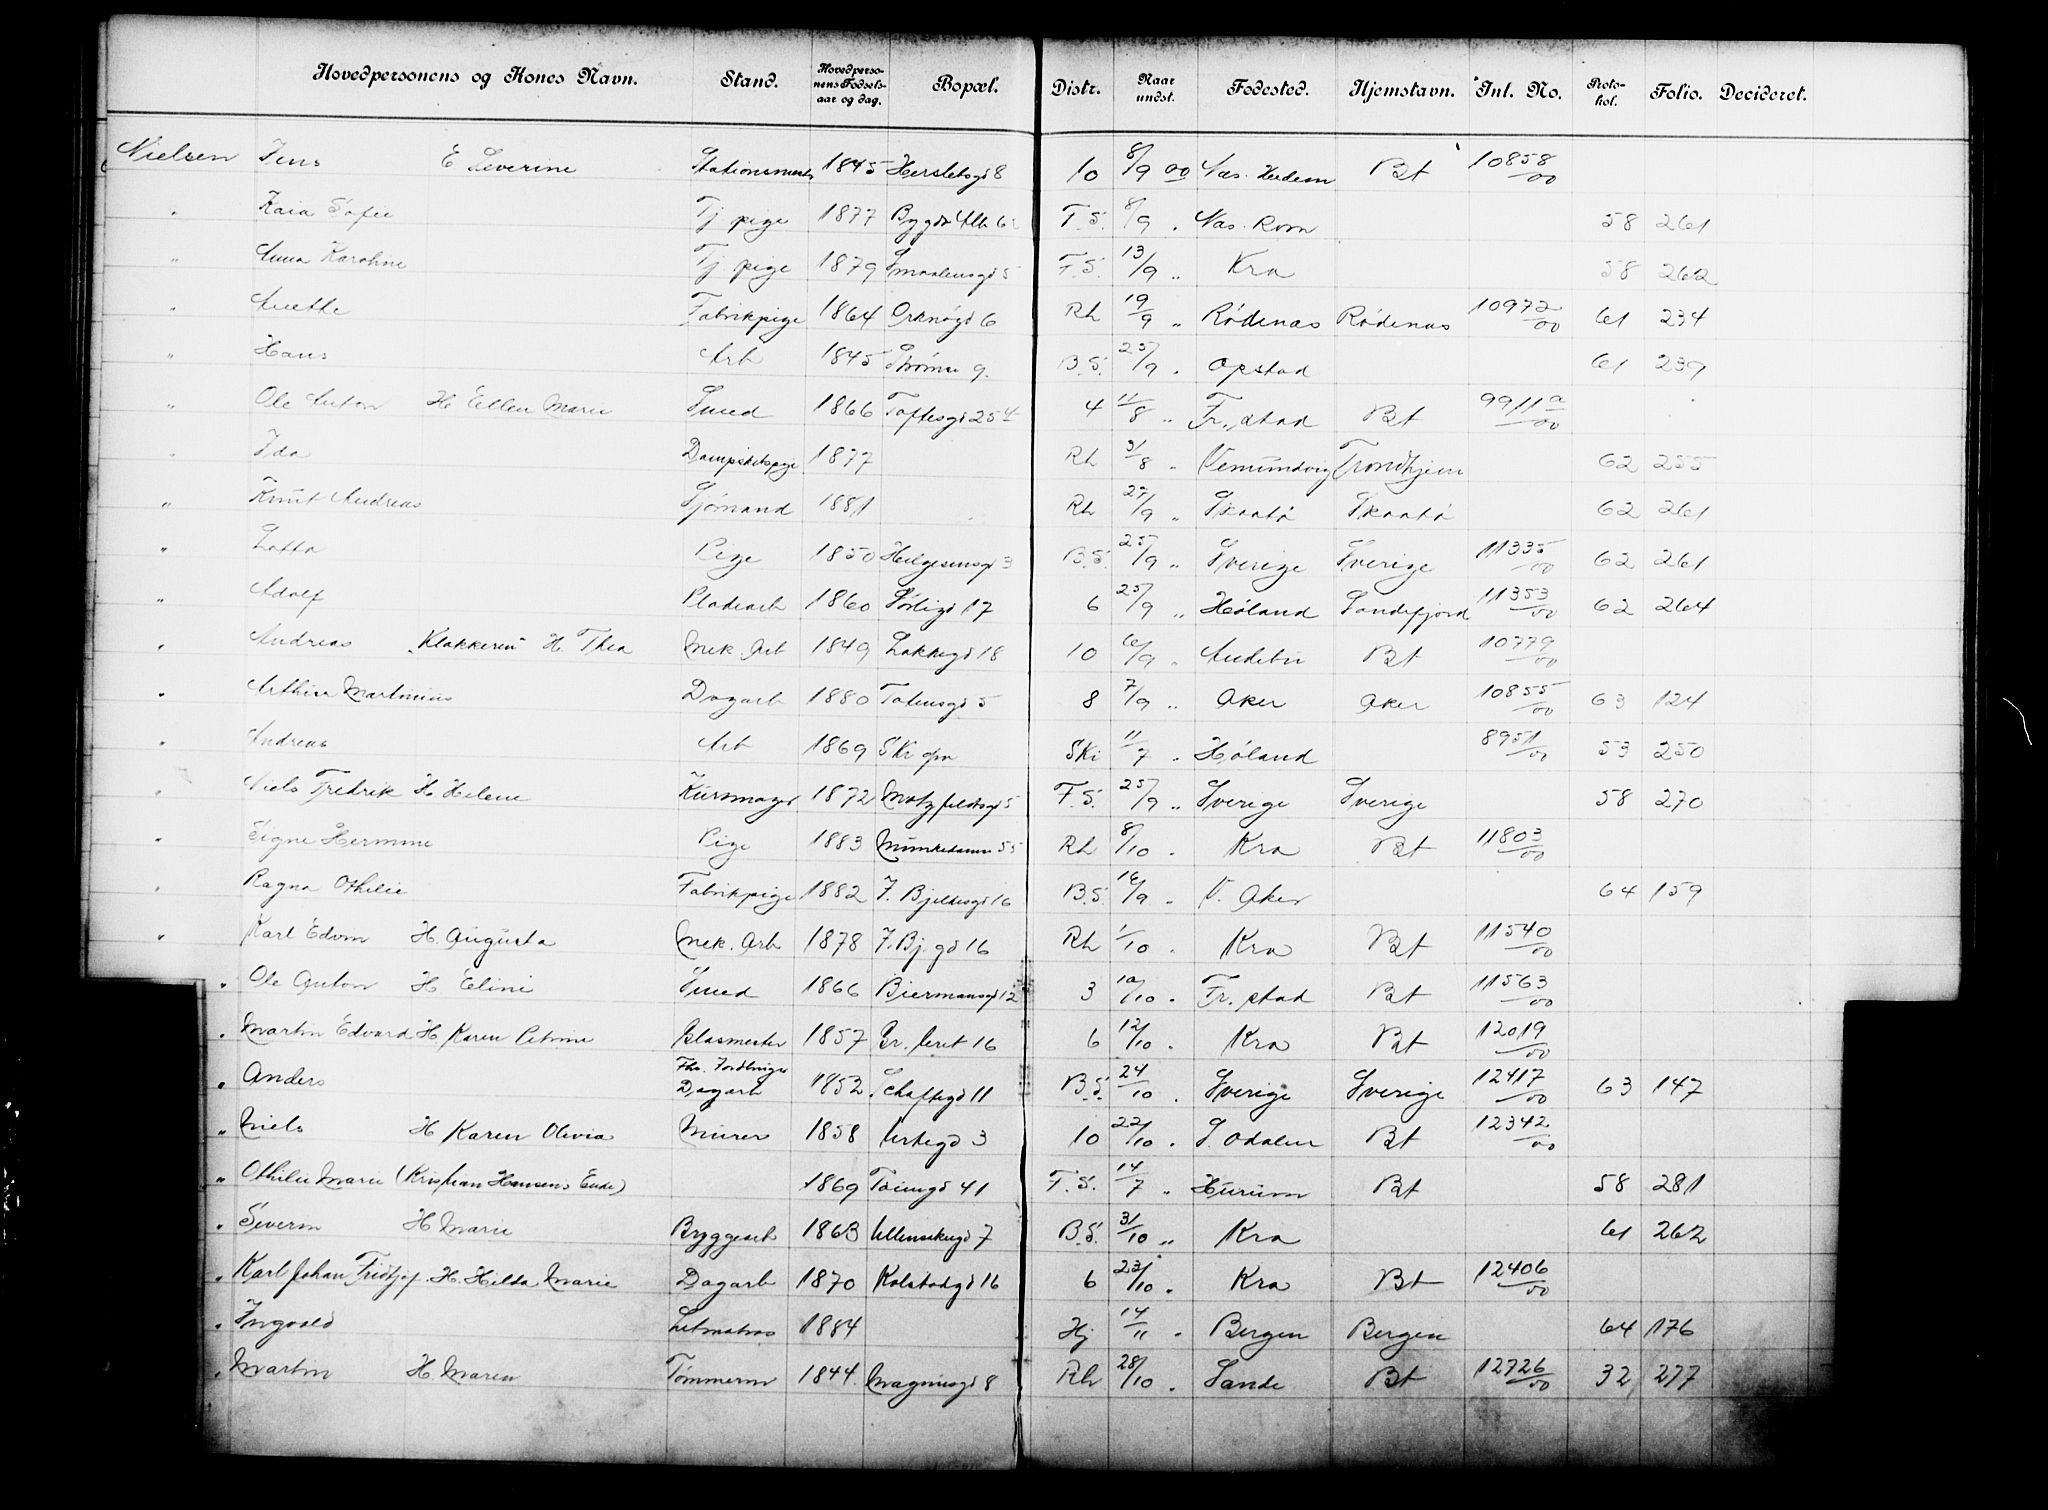 Hovedpersonens og Kones Navn. Stand. Hovedpersonens Fødselsaar og dag. Bopæl. Distr. Naar undst. Fødested. Hjemstavn. Inl. No. Protokol. Folio. Decideret.
Nielsen Jens E Severine Stationsmester 1845 Hersletsgd 8 10 8/9 00 Nas. Bt 10858/00
" Kaia Sofie Tj pige 1877 Bygdø Alle F.S. 8/9 " Nas. Rom 58 261
" Anna Karoline Tj pige 1879 Smaalensgd 5 F.S. 13/9 " Kra 58 262
" Anette Fabrikpige 1864 Orknøgd 6 Rh 19/9 " Rødenæs Rødenæs 10972/00 61 234
" Hans Arb 1845 Strømsv 9. B.S. 25/9 " Opstad 61 239
" Ole Anton H Ellen Marie Smed 1866 Toftesgd 25 4 11/8 " Fr.stad Bt 9911a/00
" Ida Dampskibspige 1877 Rh 3/8 " Vemundvig Trondhjem 62 255
" Knut Andreas Sjømand 1881 Rh 27/9 " Skaatø Skaatø 62 261
" Lotta Pige 1850 Helgesensgd 3 B.S. 25/9 " Sverige Sverige 11335/00 62 261
" Adolf Pladearb 1860 Sørligd 17 6 25/9 " Høland Sandefjord 11353/00 62 264
" Andreas Klokkerin H. Thea Mek. Arb 1849 Lakkegd 18 10 6/9 " Andebu Bt 10779/00
" Arthur Martinius Dagarb 1880 Totensgd 5 8 7/9 " Aker Aker 10855/00 63 124
" Andreas Arb 1869 Ski opn Ski 11/7 " Høland 8951/00 53 250
" Niels Fredrik H Helene Kursmager 1872 Motzfeldtsgd 5 F.S. 25/9 " Sverige Sverige 58 270
" Signe Hermine Pige 1883 Munkedamsv 55 Rh 8/10 " Kra Bt 11803/00
" Ragna Othilie Fabrikpige 1882 J. Bjelkesgd 16 B.S. 16/9 " V. Aker 64 159
" Karl Edvin H. Augusta Mek. Arb 1878 J. Bj. gd 16 Rh 1/10 " Kra Bt 11540/00
" Ole Anton H Eline Smed 1866 Biermansgd 12 3 10/10 " Fr.stad Bt 11563/00
" Martin Edvard H Karen Petrine Glasmester 1857 Gr. leret 16 6 12/10 " Kra Bt 12019/00
" Anders Fhv. Dagarb 1852 Schaftegd 11 B.S. 24/10 " Sverige Sverige 12417/00 63 147
" Niels H Karen Olivia Murer 1858 Urtegd 3 10 22/10 " S. Odalen Bt 12342/00
" Othilie Marie (Kristian Hansens Enke) 1869 Tøiengd 41 F.S. 14/7 " Hurum Bt 58 281
" Severin H Marie Bryggearb 1863 Ullensakergd 7 B.S. 31/10 " Kra 61 262
" Karl Johan Fridtjof H. Hilda Marie Dagarb 1870 Kolstadgd 16 6 23/10 " Kra Bt 12406/00
" Ingvald Letmatros 1884 Hj 14/11 " Bergen Bergen 64 176
" Martin H. Maren Tømmerm 1844 Magnusgd 8 Rh 28/10 " Sande Bt 12726/00 32 277